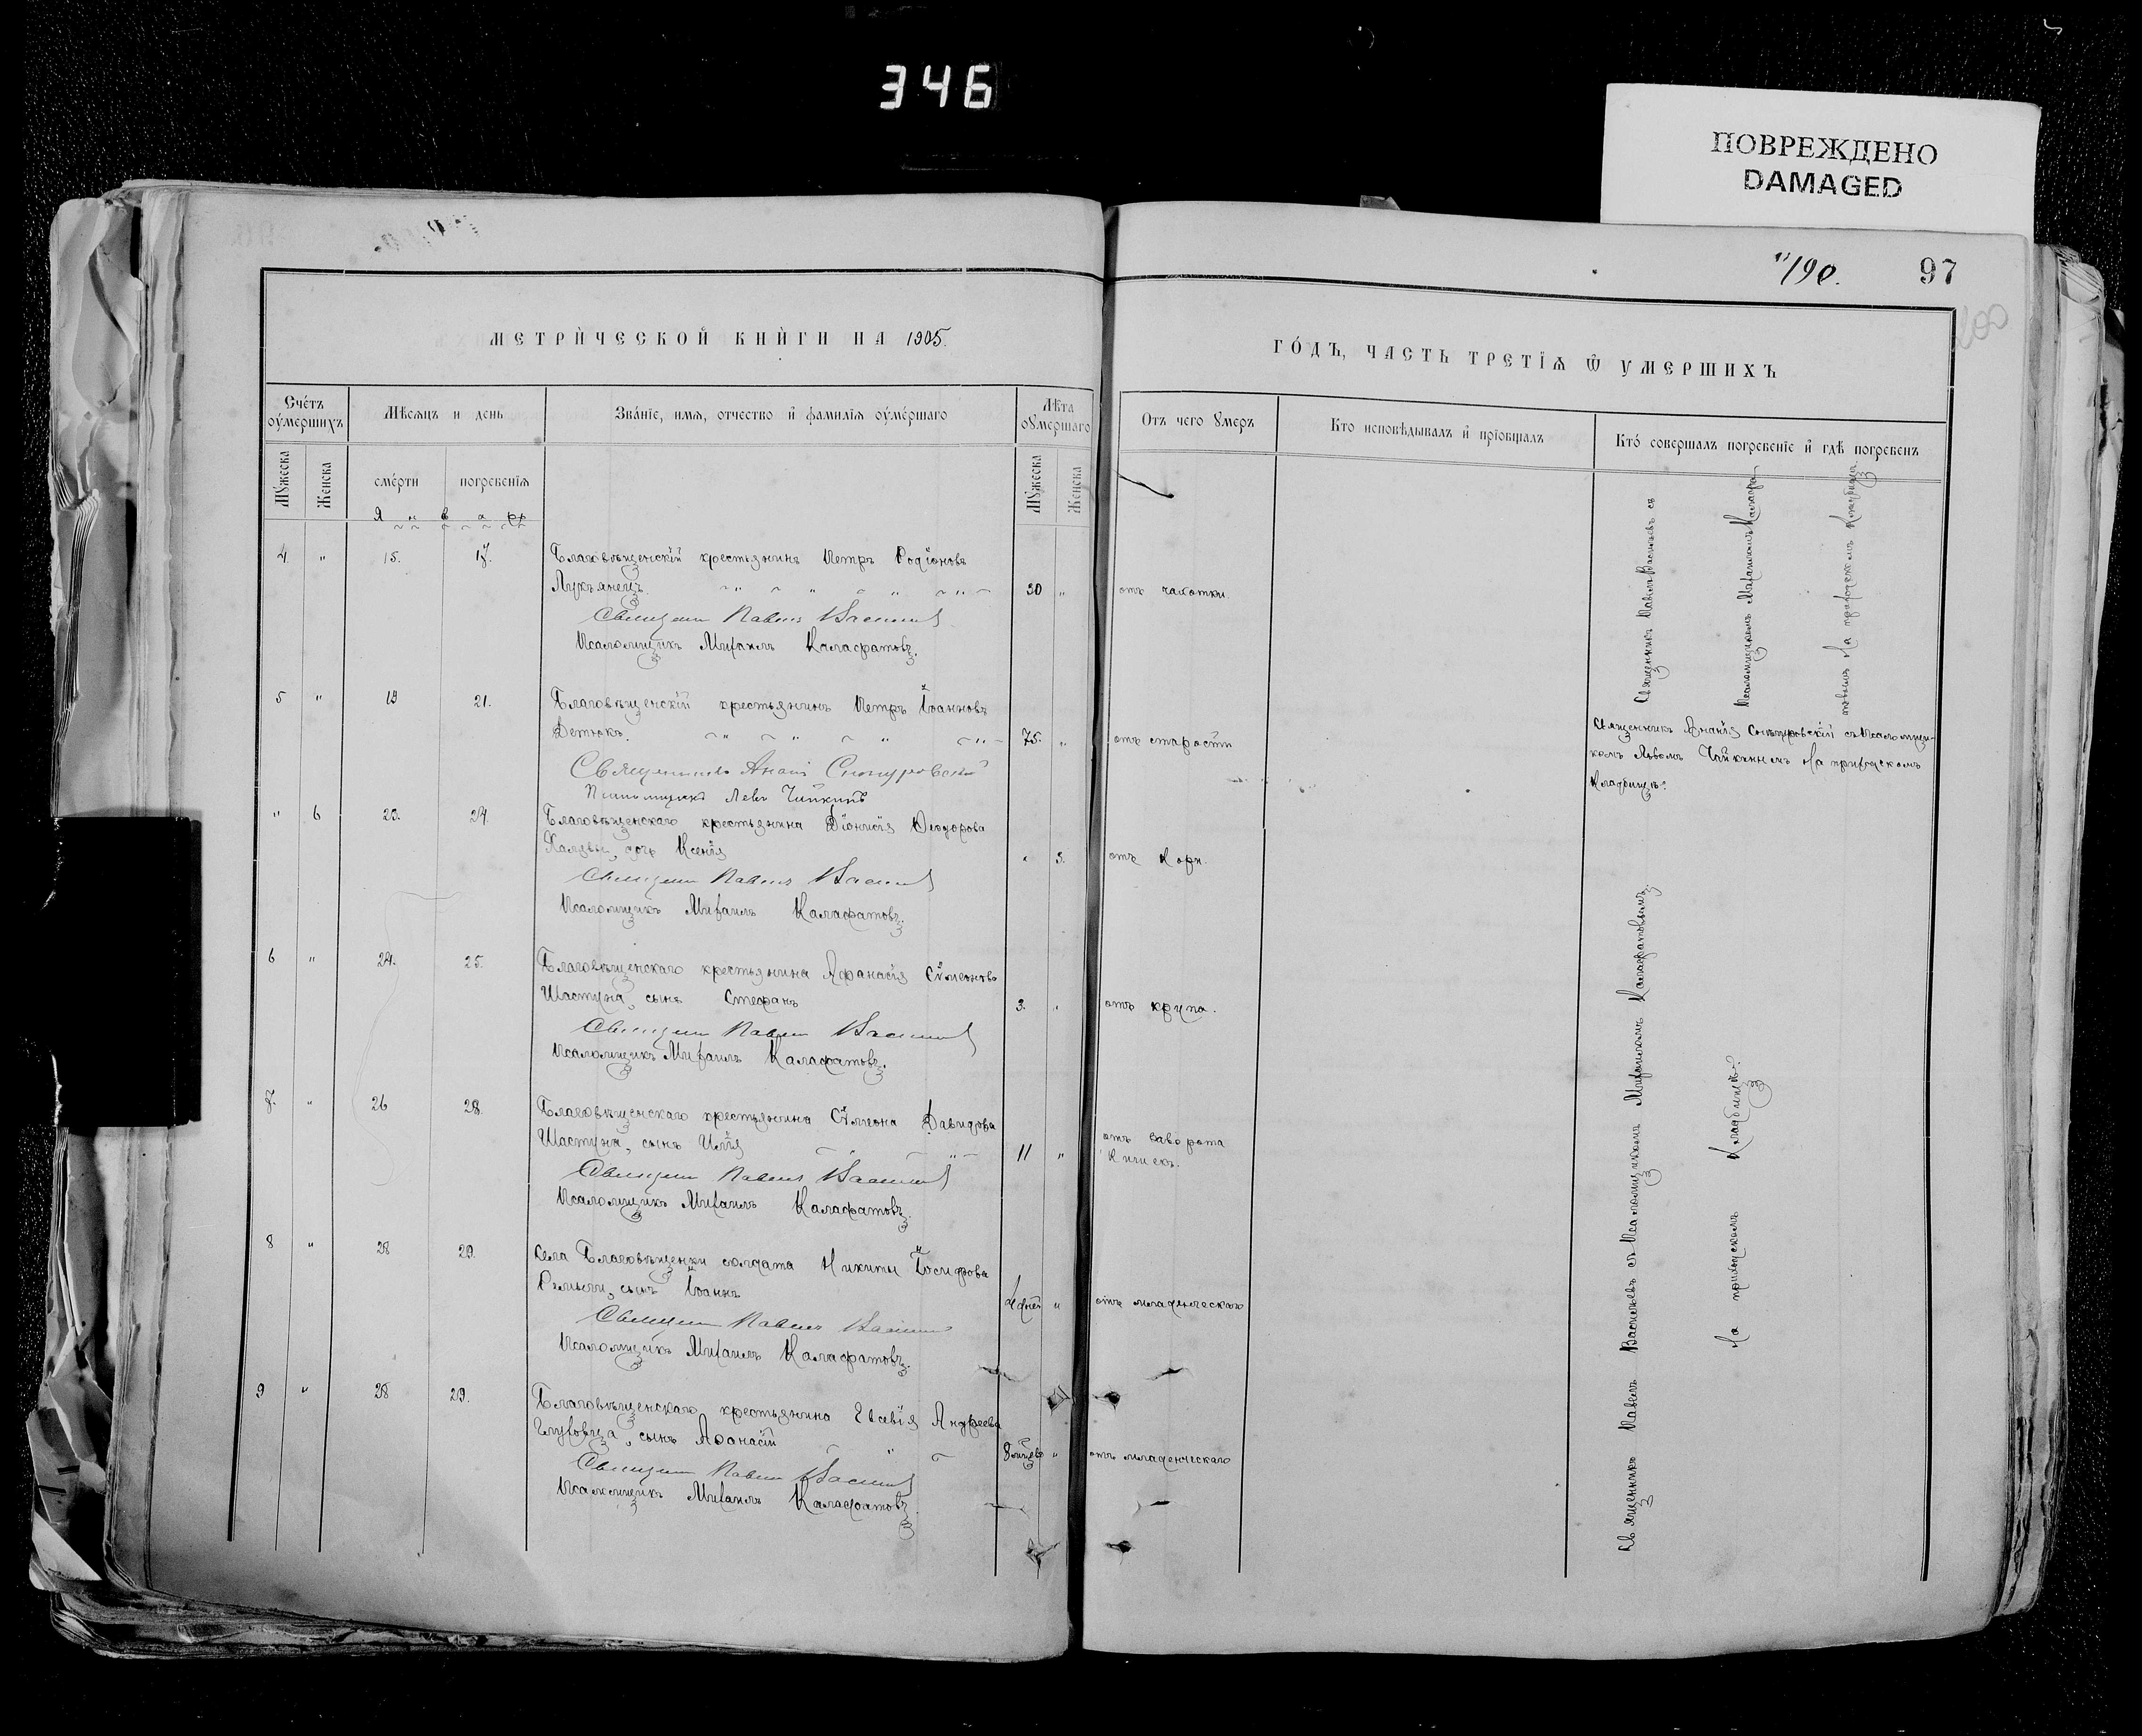 346
ПОВРЕЖДЕНО
DAMAGED
190.
97
МЕТРИЧЕСКОЙ КНИГИ НА 1905.
ГОДЪ, ЧАСТЬ ТРЕТІЯ Ѿ УМЕРШИХЪ
Счетъ оумершихъ
Мѣсяцъ и день
Званіе, имя, отчество и фамилія оумершаго
Лѣта оумершаго
Отъ чего умеръ
Кто исповѣдывалъ и пріобщалъ
Кто совершалъ погребеніе и гдѣ погребенъ
Мужеска
Женска
смерти
погребенія
Мужеска
Женска
Январь
4 " 15. 17. Благовѣщенскій крестьянинъ Петръ Родіоновъ
Лукъянецъ. 30 " отъ чахотки.
Священникъ Павелъ Васильевъ
Псаломщикъ Михаилъ Калафатовъ.
Священникъ Павелъ Васильевъ съ
Псаломщикомъ Михаиломъ Калафа-
товымъ на приходскомъ кладбищѣ.
5 " 19 21. Благовѣщенскій крестьянинъ Петръ Іоанновъ
Детюкъ. 75. " отъ старости
Священникъ Ананія Снѣгуровскій съ Псаломщи-
комъ Львомъ Чайкинымъ на приходскомъ
кладбищѣ.
Священникъ Ананія Снѣгуровскій
Псаломщикъ Левъ Чайкинъ
" 6 23. 24. Благовѣщенскаго крестьянина Діонисія Ѳеодорова
дочь Ксенія " 3. отъ кори.
Священникъ Павелъ Васильевъ
Псаломщикъ Михаилъ Калафатовъ.
6 " 24. 25. Благовѣщенскаго крестьянина Афанасія Сѵмеонова
Шастуна, сынъ Стефанъ 3. " отъ крупа.
Священникъ Павелъ Васильевъ
Псаломщикъ Михаилъ Калафатовъ.
7. " 26 28. Благовѣщенскаго крестьянина Сѵмеона Давидова
Шастуна, сынъ Илія 11 " отъ заворота
кишекъ.
Священникъ Павелъ Васильевъ
Псаломщикъ Михаилъ Калафатовъ.
8 " 28 29. Села Благовѣщенки солдата Никиты Іосифова
сынъ Іоаннъ дней " отъ младенческаго
Священникъ Павелъ Васильевъ
Псаломщикъ Михаилъ Калафатовъ.
9 " 28 29. Благовѣщенскаго крестьянина Евсевія Андреева
сынъ Аѳанасій 8 " отъ младенческаго
Священникъ Павелъ Васильевъ
Псаломщикъ Михаилъ Калафатовъ.
Священникъ Павелъ Васильевъ съ Псаломщикомъ Михаиломъ Калафатовымъ
на приходскомъ кладбищѣ.